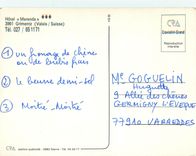 Hôtel « Moranda » ***
3961 Grimentz (Valais / Suisse)
Tél. 027 / 651171
CPA
Corvaisin-Grand
① un fromage de chèvre
ou de brebis frais
② le beurre demi-sel
③ Moitié-Moitié
Me GOGUELIN
Huguette
9 Allée des chênes
GERMIGNY L'EVEQUE
77910 VARREDDES
CPA